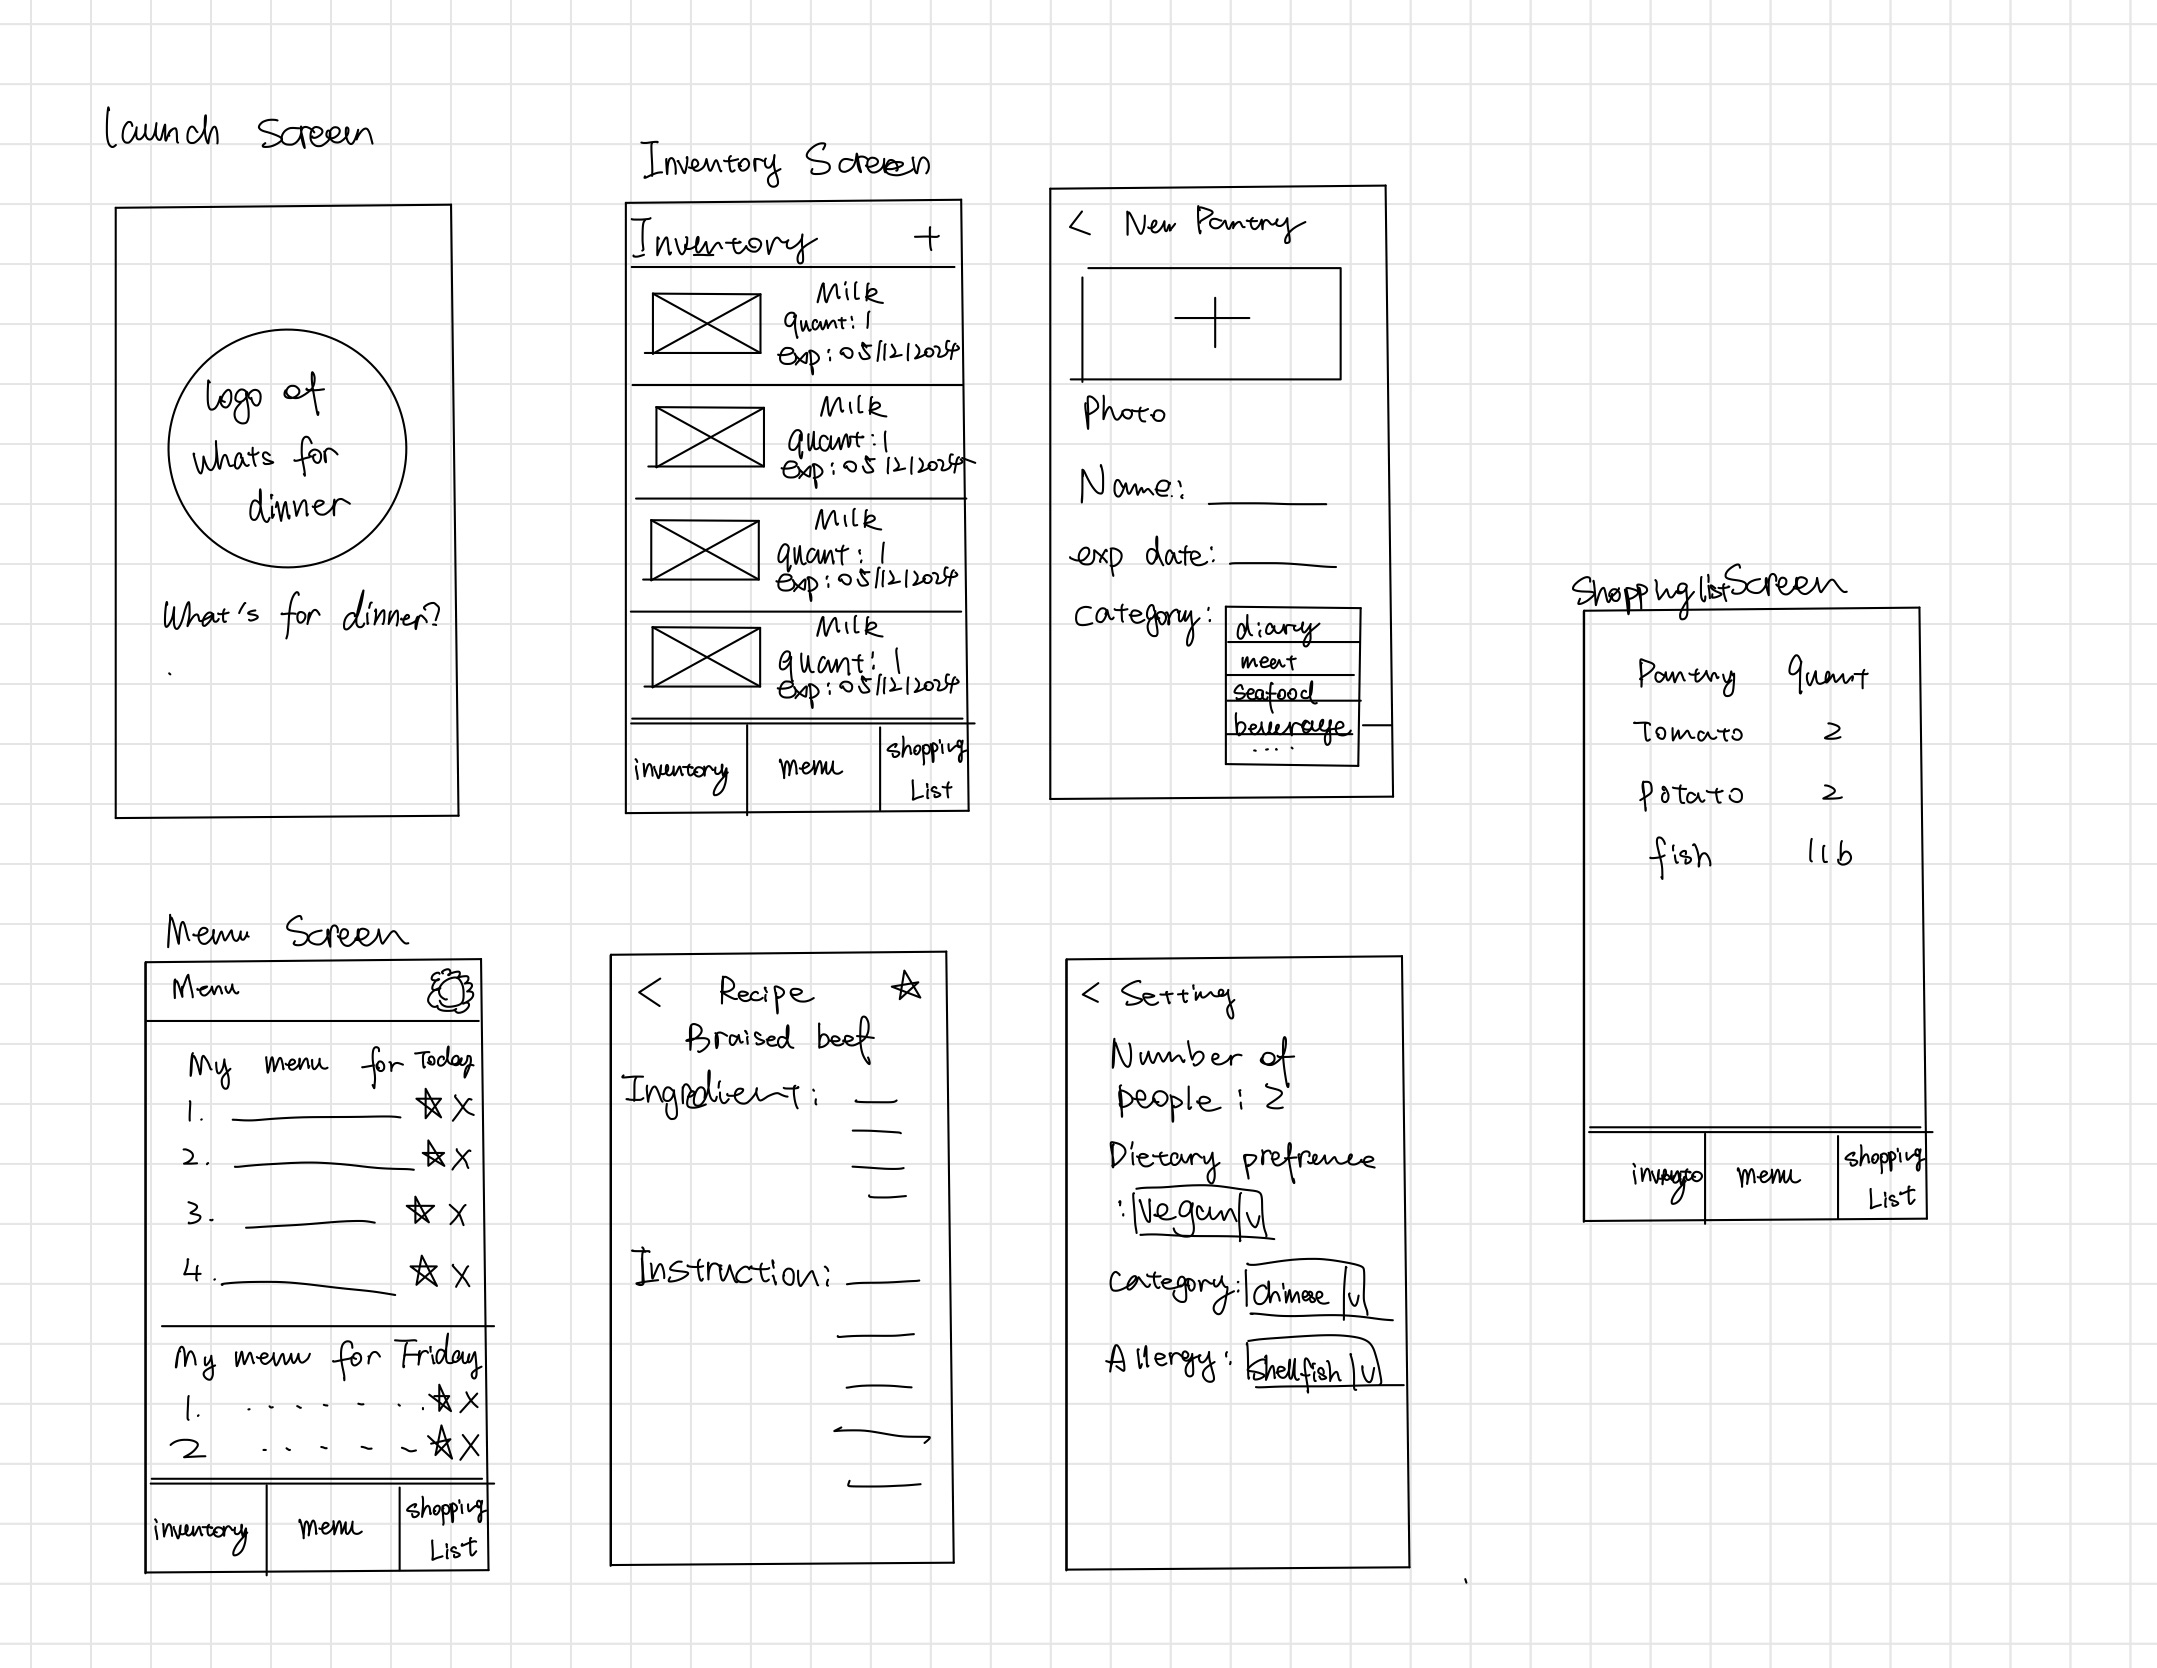 Launch Screen
Logo of
whats for
dinner
What's for dinner?
Inventory Screen
Inventory +
Milk
quant: 1
exp: 05/12/2024
Milk
quant: 1
exp: 05/12/2024
Milk
quant: 1
exp: 05/12/2024
Milk
quant: 1
exp: 05/12/2024
inventory menu shopping
List
< New Pantry
+
Photo
Name:
exp date:
category:
diary
meat
seafood
beverage
....
Shopping list Screen
Pantry Quant
Tomato 2
Potato 2
fish 1lb
invento menu shopping
List
Menu Screen
Menu
My menu for Today
1. X
2. X
3. X
4. X
My menu for Friday
1. X
2 X
inventory menu shopping
List
< Recipe
Braised beef
Ingredient:
Instruction:
< Setting
Number of
people : 2
Dietary prefrence
: Vegan v
category: Chinese v
Allergy: Shellfish v